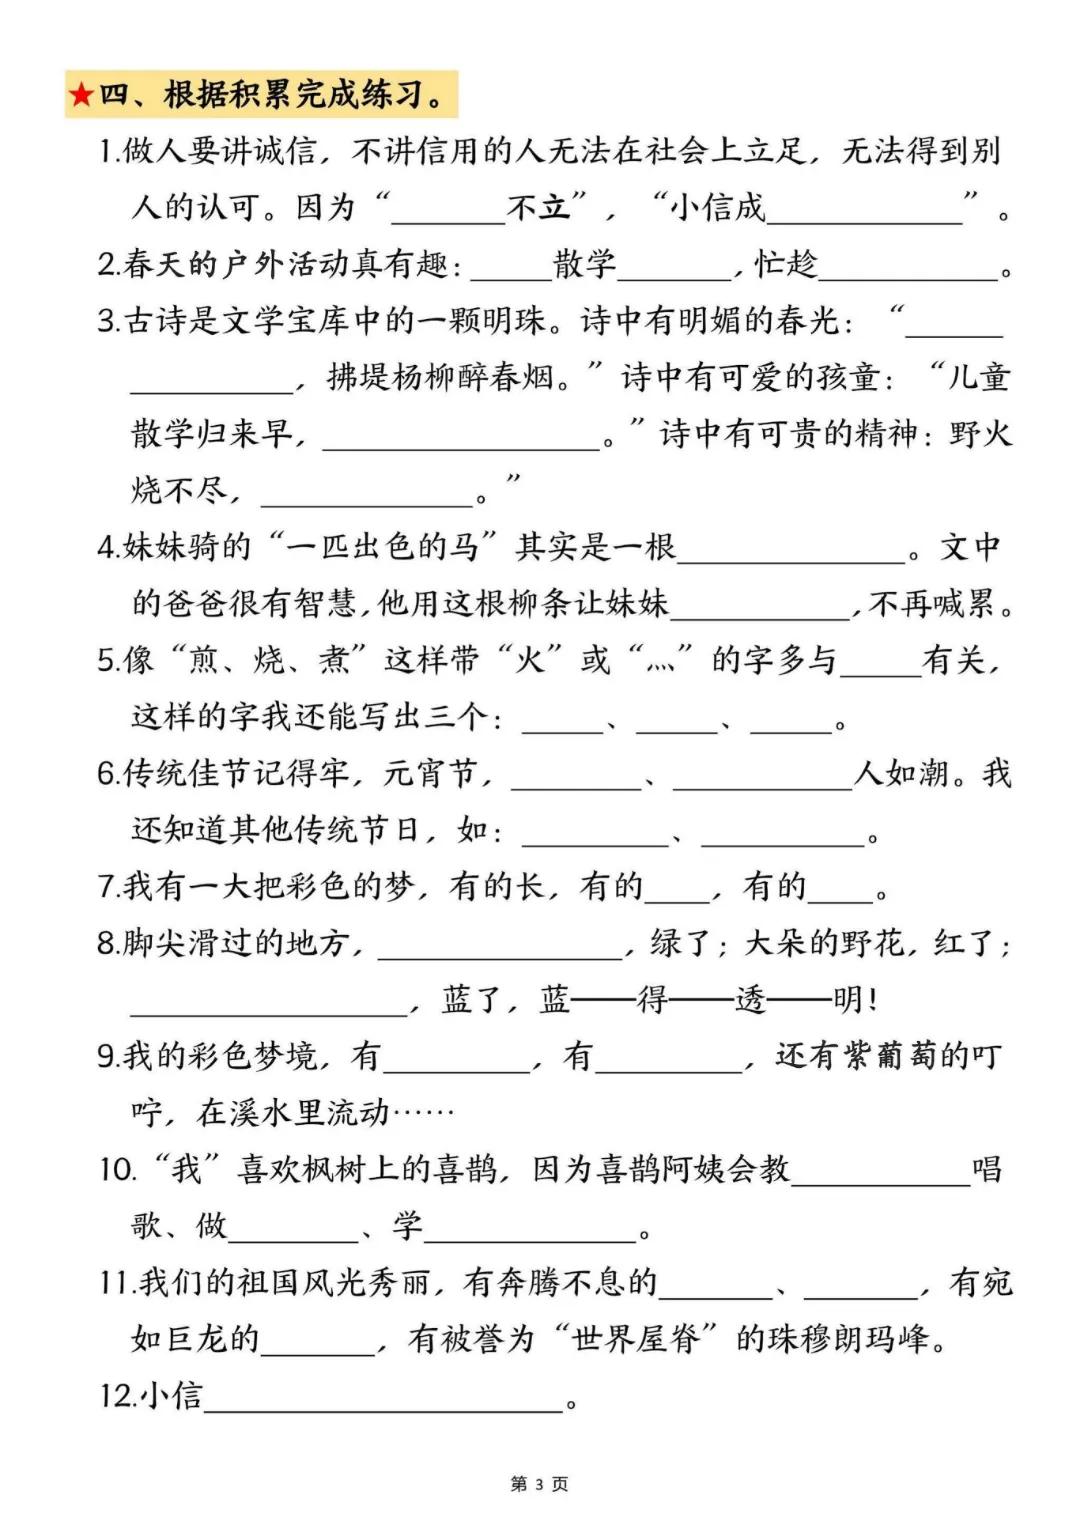 ★四、根据积累完成练习。
1.做人要讲诚信，不讲信用的人无法在社会上立足，无法得到别
人的认可。因为“_______不立”，“小信成____________”。
2.春天的户外活动真有趣：_____散学_______,忙趁___________。
3.古诗是文学宝库中的一颗明珠。诗中有明媚的春光：“______
__________，拂堤杨柳醉春烟。”诗中有可爱的孩童：“儿童
散学归来早，_________________。”诗中有可贵的精神：野火
烧不尽，_____________。”
4.妹妹骑的“一匹出色的马”其实是一根______________。文中
的爸爸很有智慧,他用这根柳条让妹妹___________,不再喊累。
5.像“煎、烧、煮”这样带“火”或“灬”的字多与_____有关，
这样的字我还能写出三个：_____、_____、_____。
6.传统佳节记得牢，元宵节，________、___________人如潮。我
还知道其他传统节日，如：_________、__________。
7.我有一大把彩色的梦，有的长，有的____，有的____。
8.脚尖滑过的地方，_______________，绿了；大朵的野花，红了；
_________________，蓝了，蓝——得——透——明！
9.我的彩色梦境，有_________，有_________，还有紫葡萄的叮
咛，在溪水里流动……
10.“我”喜欢枫树上的喜鹊，因为喜鹊阿姨会教___________唱
歌、做________、学_____________。
11.我们的祖国风光秀丽，有奔腾不息的_______、_______，有宛
如巨龙的_______，有被誉为“世界屋脊”的珠穆朗玛峰。
12.小信______________________。
第 3 页